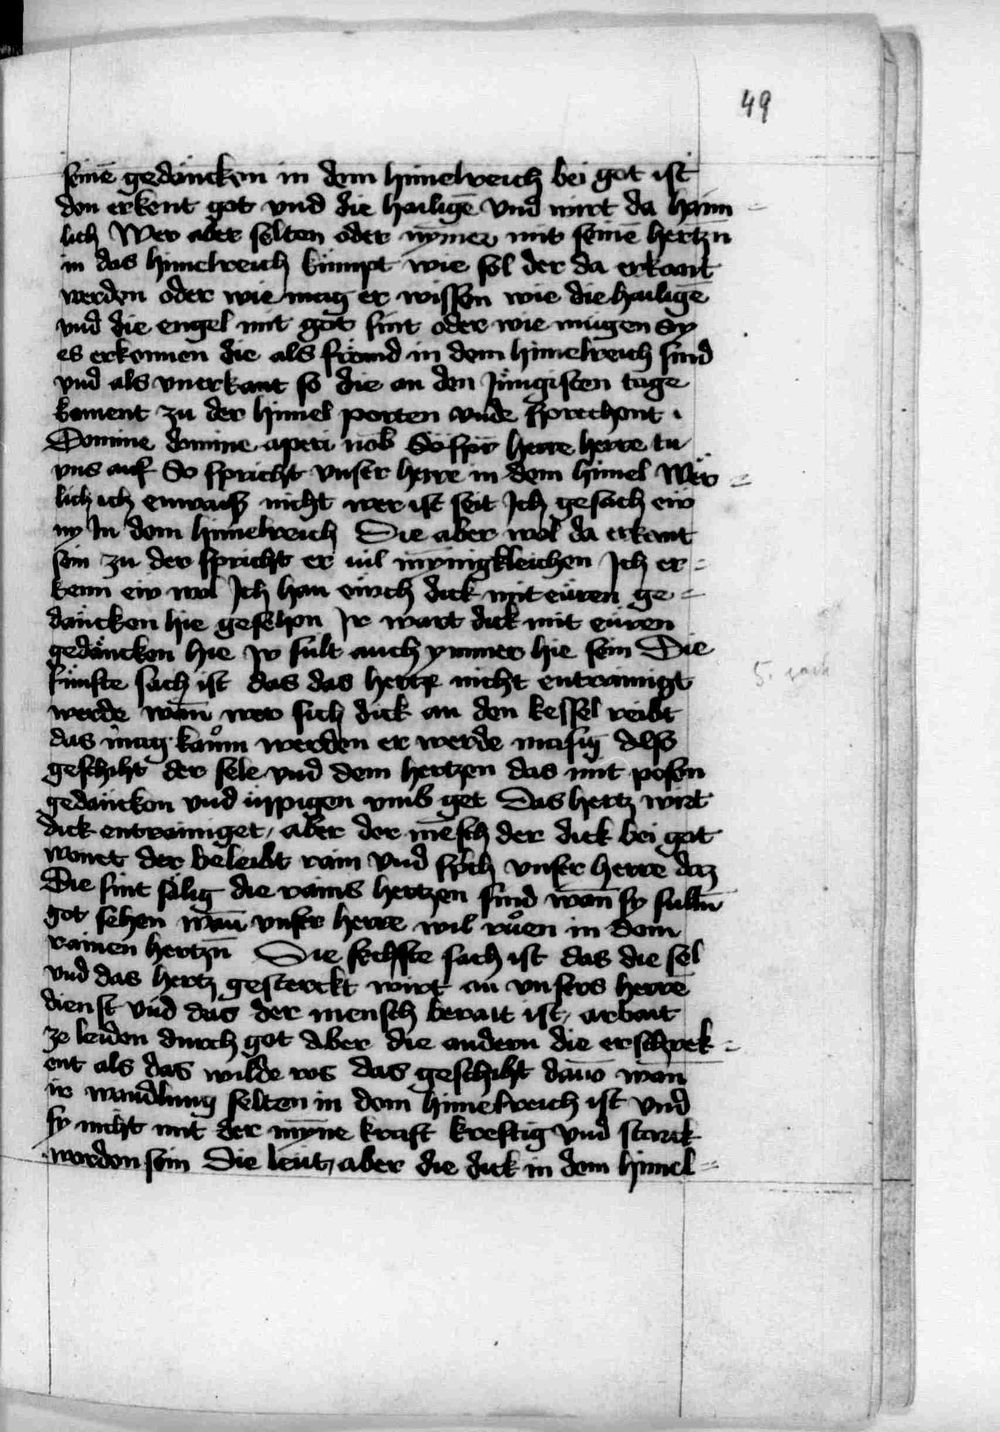 49
seinē gedäncken in dem himelreich bei got ist
den erkent got vnd die hailigē vnd wirt da haim=
lich Wer aber selten oder nȳmer mit seinē hertzn̄
in das himelreich kumpt wie sol der da erkant
werden oder wie mag er wissen wie die hailigē
vnd die engel mit got sint oder wie mügen sy
es erkennen die als främd in dem himelreich sind
vnd als vnerkant so die an den jüngisten tage
koment zu der himel porten vnde sprechent .
Domine domine aperi nob̄ So spr̄ herre herre tu
vns auf So spricht vnser herre in dem himel Wer=
lich ich enwaiß nicht wer ist seit Ich gesach eiv
ny In dem himelreich Die aber wol da erkant
sein zu der spricht er vil mynnigkleichen Ich er=
kenn eiv wol Ich han eivch dick mit eüren ge=
däncken hie gesehen Ir wart dick mit eüren
gedäncken hie Ir sült auch ymmer hie sein Die
fünfte sach ist das das hertze nicht entrainigt
5. sach
werde wan̄ wer sich dick an den kessel reibt
das mag kaům werden er werde masig Alß
geschiht der sele vnd dem hertzen das mit posen
gedäncken vnd üppigen vmb get Das hertz wirt
dick entrainiget / aber der mēsch der dick bei got
wonet der beleibt rain vnd sprch vnser herre daz
Die sint sälig die rains hertzen sind wan̄ sy sulln̄
got sehen wan̄ vnser herre wil růen in dem
rainen hertzn̄ Die sechste sach ist das die sel
vnd das hertz gesterckt wirt an vnsers herrē
dienst vnd das der mensch berait ist / arbait
ze leiden durch got Aber die andern die erschrek=
ent als das wilde ros das geschiht davō wan
ir wandlung selten in dem himelreich ist vnd
sy nicht mit der mynne kraft kreftig vnd starck
worden sein Die leut / aber die dick in dem himel=